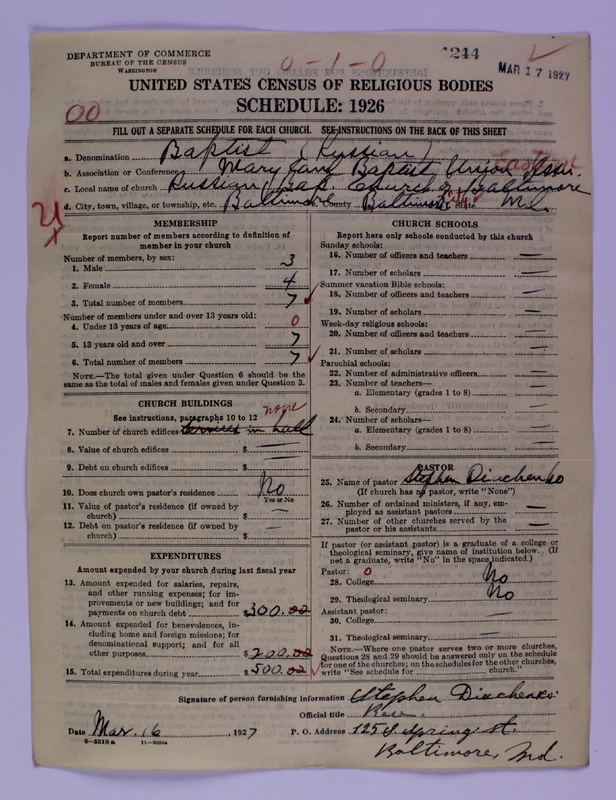 DEPARTMENT OF COMMERCE
BUREAU OF THE CENSUS
WASHINGTON
0-1-0
1244
MAR 17 1927
UNITED STATES CENSUS OF RELIGIOUS BODIES
SCHEDULE: 1926
00
FILL OUT A SEPARATE SCHEDULE FOR EACH CHURCH. SEE INSTRUCTIONS ON THE BACK OF THIS SHEET
a. Denomination Baptist (Russian)
b. Association or Conference Maryland Baptist Union Assn. Eastern
c. Local name of church Russian Bap. Church of Baltimore
d. City, town, village, or township, etc. Baltimore e. County Baltimore State Md.
MEMBERSHIP
Report number of members according to definition of
member in your church
Number of members, by sex:
1. Male 3
2. Female 4
3. Total number of members 7
Number of members under and over 13 years old:
4. Under 13 years of age 0
5. 13 years old and over 7
6. Total number of members 7
NOTE.—The total given under Question 6 should be
same as the total of males and females given under Question 3.
CHURCH BUILDINGS
See instructions, paragraphs 10 to 12 none
7. Number of church edifices Services in hall
8. Value of church edifices $ —
9. Debt on church edifices $ —
10. Does church own pastor's residence No
Yes or No
11. Value of pastor's residence (if owned by
church) $ —
12. Debt on pastor's residence (if owned by
church) $ —
EXPENDITURES
Amount expended by your church during last fiscal year
13. Amount expended for salaries, repairs,
and other running expenses; for im-
provements or new buildings; and for
payments on church debt $300.00
14. Amount expended for benevolences, in-
cluding home and foreign missions; for
denominational support; and for all
other purposes $200.00
15. Total expenditures during year $500.00
CHURCH SCHOOLS
Report here only schools conducted by this church
Sunday schools:
16. Number of officers and teachers —
17. Number of scholars —
Summer vacation Bible schools:
18. Number of officers and teachers —
19. Number of scholars —
Week-day religious schools:
20. Number of officers and teachers —
21. Number of scholars —
Parochial schools:
22. Number of administrative officers —
23. Number of teachers—
a. Elementary (grades 1 to 8) —
b. Secondary —
24. Number of scholars—
a. Elementary (grades 1 to 8) —
b. Secondary —
PASTOR
25. Name of pastor Stephen Diachenko
(If church has no pastor, write "None")
26. Number of ordained ministers, if any, em-
ployed as assistant pastors —
27. Number of other churches served by the
pastor or his assistants —
If pastor (or assistant pastor) is a graduate of a college or
theological seminary, give name of institution below. (If
not a graduate, write "No" in the space indicated.)
Pastor: 0
28. College No
29. Theological seminary No
Assistant pastor:
30. College —
31. Theological seminary —
NOTE.—Where one pastor serves two or more churches,
Questions 28 and 29 should be answered only on the schedule
for one of the churches; on the schedules for the other churches,
write "See schedule for church."
Signature of person furnishing information Stephen Diachenko
Official title
Date Mar. 16, 1927 P. O. Address 125 S. Spring St.
8-5518a
Baltimore, Md.